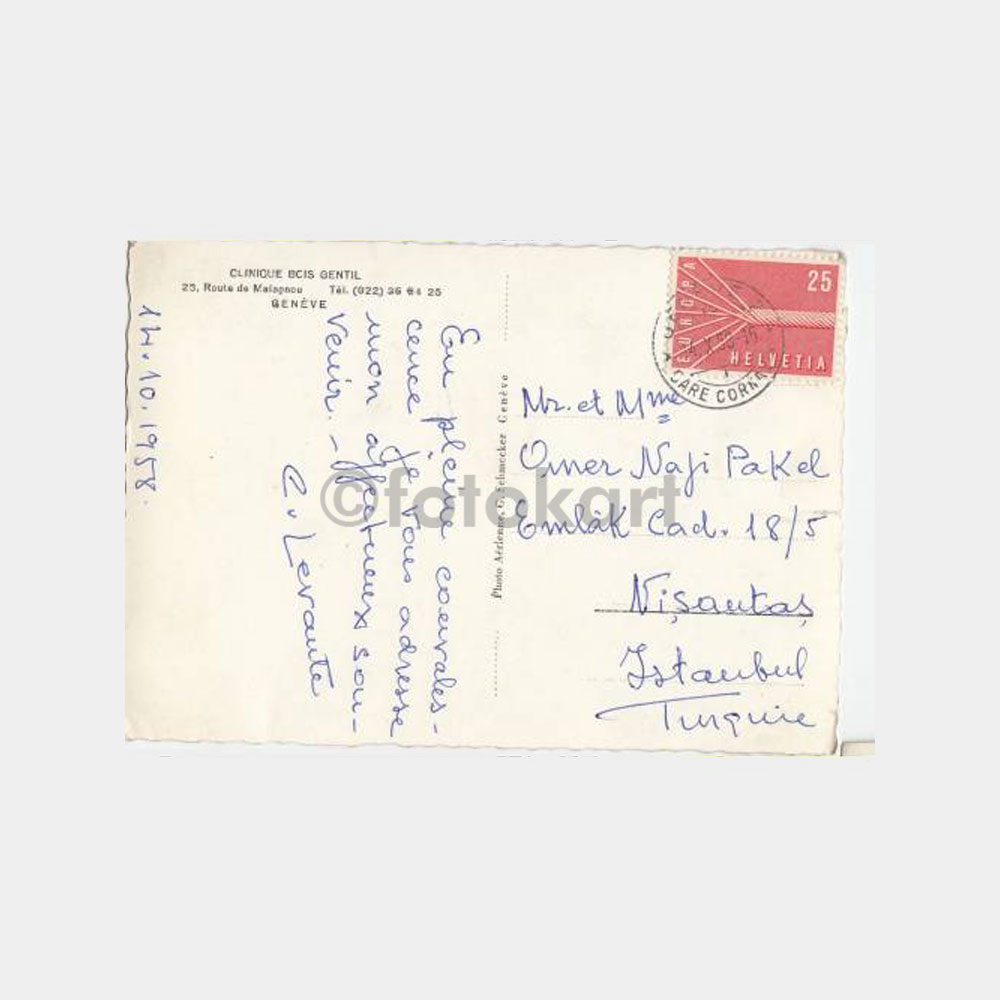 CLINIQUE BOIS GENTIL
23, Route de Malagnou Tél. (022) 36 64 25
GENÈVE
14.10.1958.
En pleine convales-
cence je vous adresse
mon affectueux sou-
venir. -
C. Levante
Photo Aérienne, G. Schmocker Genève
EUROPA
25
HELVETIA
GARE CORNA
Mr. et Mme
Omer Naji Pakel
Emlâk Cad. 18/5
Nişantaş
Istanbul
Turquie
©fotokart